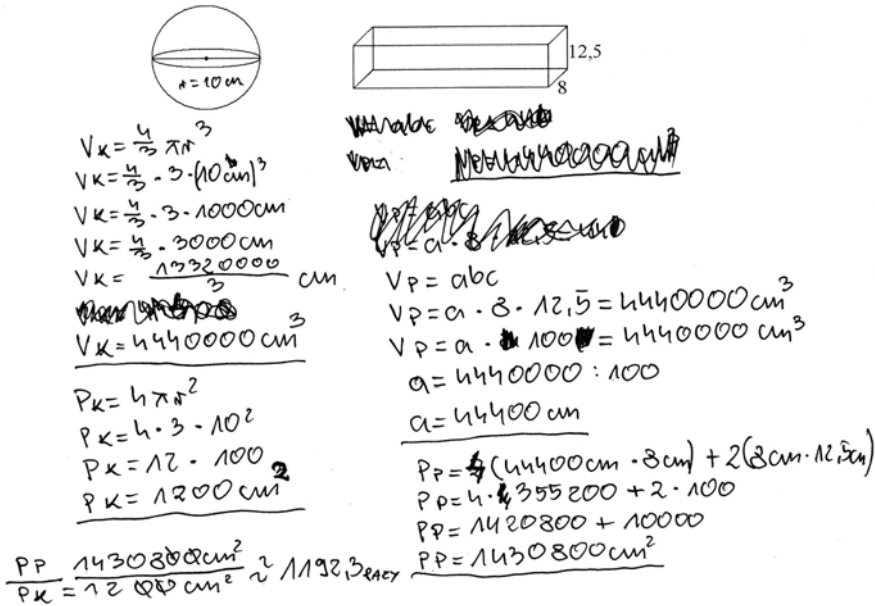 r=10 cm
12,5
8
V_K = 4/3 πr³
V_K = 4/3 · 3 · (10 cm)³
V_K = 4/3 · 3 · 1000 cm
V_K = 4/3 · 3000 cm
V_K = 13320000/3 cm
V_K = 4440000 cm³
P_K = 4πr²
P_K = 4 · 3 · 10²
P_K = 12 · 100
P_K = 1200 cm²
V_P = abc
V_P = a · 8 · 12,5 = 4440000 cm³
V_P = a · 100 = 4440000 cm³
a = 4440000 : 100
a = 44400 cm
P_P = 4(44400cm · 8cm) + 2(8cm · 12,5cm)
P_P = 4 · 355200 + 2 · 100
P_P = 1420800 + 10000
P_P = 1430800 cm²
P_P/P_K = 1430800 cm²/1200 cm² ≈ 1192,3 razy